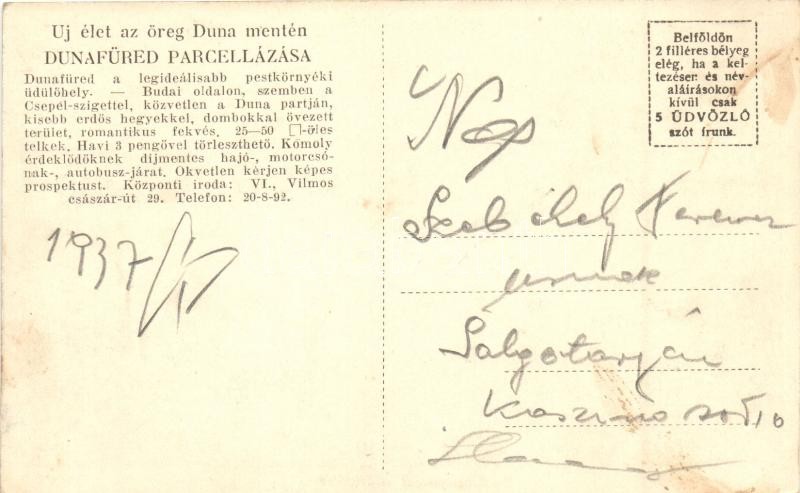 Uj élet az öreg Duna mentén
DUNAFÜRED PARCELLÁZÁSA
Dunafüred a legideálisabb pestkörnyéki
üdülőhely. — Budai oldalon, szemben a
Csepel-szigettel, közvetlen a Duna partján,
kisebb erdős hegyekkel, dombokkal övezett
terület, romantikus fekvés. 25—50 □-öles
telkek. Havi 3 pengővel törleszthető. Komoly
érdeklődőknek dijmentes hajó-, motorcsó-
nak-, autobusz-járat. Okvetlen kérjen képes
prospektust. Központi iroda: VI., Vilmos
császár-út 29. Telefon: 20-8-92.
1937
Belföldön
2 filléres bélyeg
elég, ha a kel-
tezésen és név-
aláirásokon
kívül csak
5 ÜDVÖZLŐ
szót írunk.
Ngs
Ferenc
urnak
Salgotarján